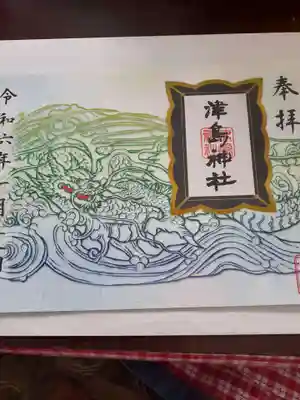 奉拝
津島神社
令和六年一月